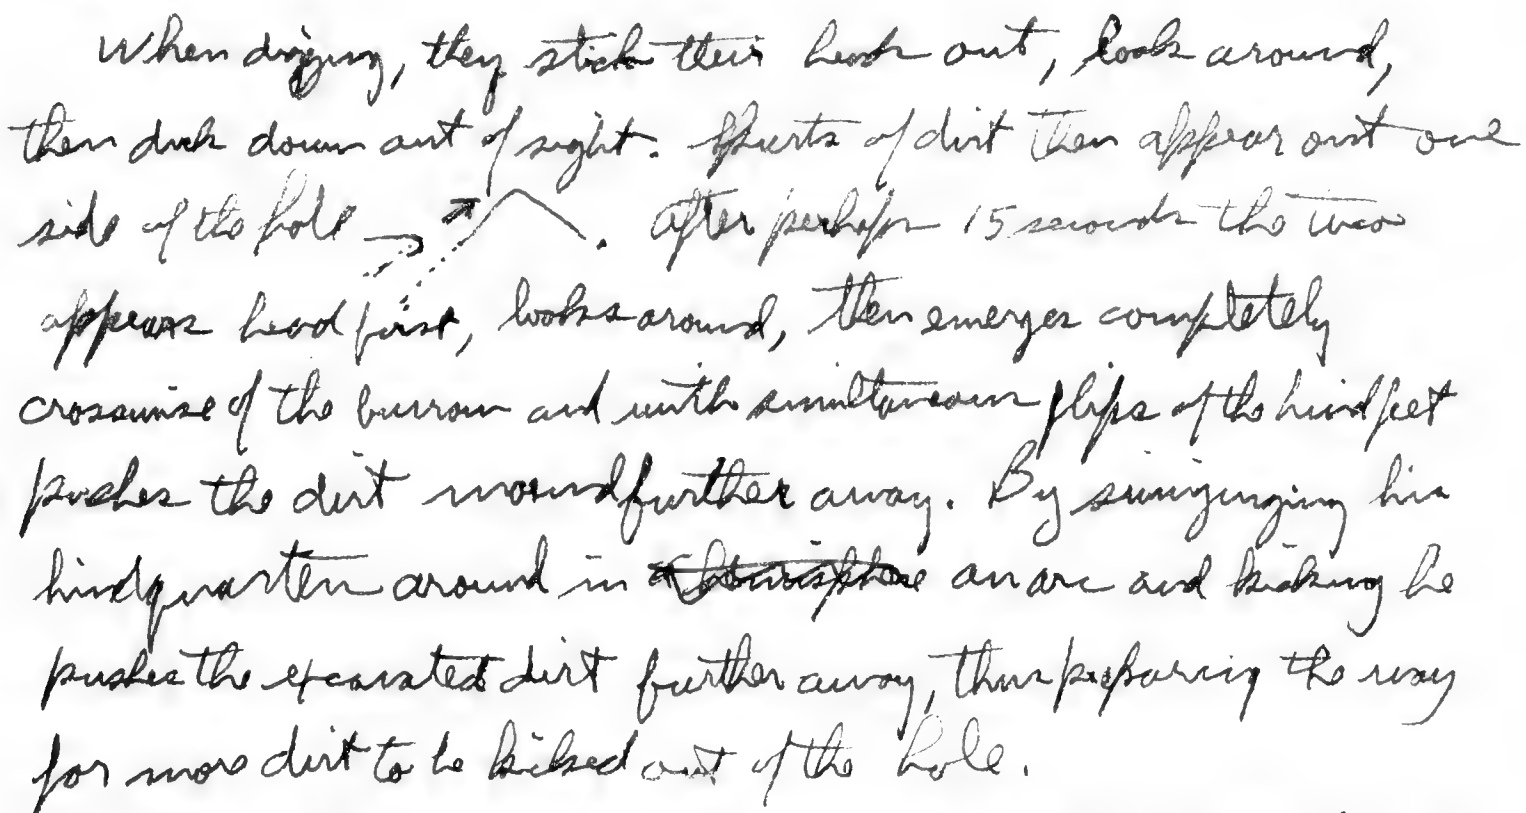 When digging, they stick their heads out, look around,
then duck down out of sight. Spurts of dirt then appear out one
side of the hole . After perhaps 15 seconds the tuco
appears head first, looks around, then emerges completely
crosswise of the burrow and with simultaneous flips of the hind feet
pushes the dirt mound further away. By swinging his
hindquarters around in an arc and kicking he
pushes the excavated dirt further away, thus preparing the way
for more dirt to be kicked out of the hole.